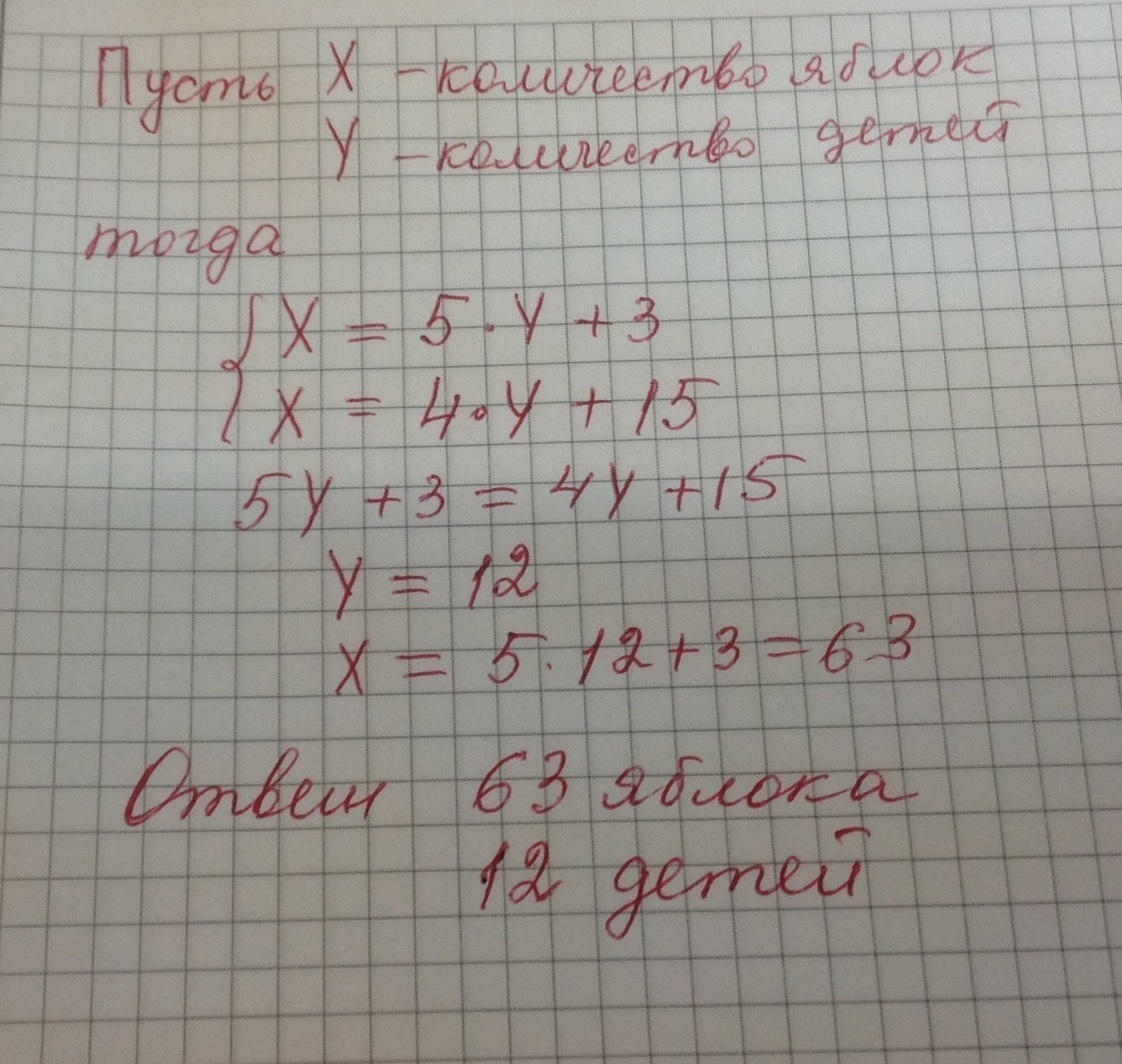 Пусть X - количество яблок
Y - количество детей
тогда
{ X = 5 · Y + 3
X = 4 · Y + 15
5Y + 3 = 4Y + 15
Y = 12
X = 5 · 12 + 3 = 63
Ответ 63 яблока
12 детей